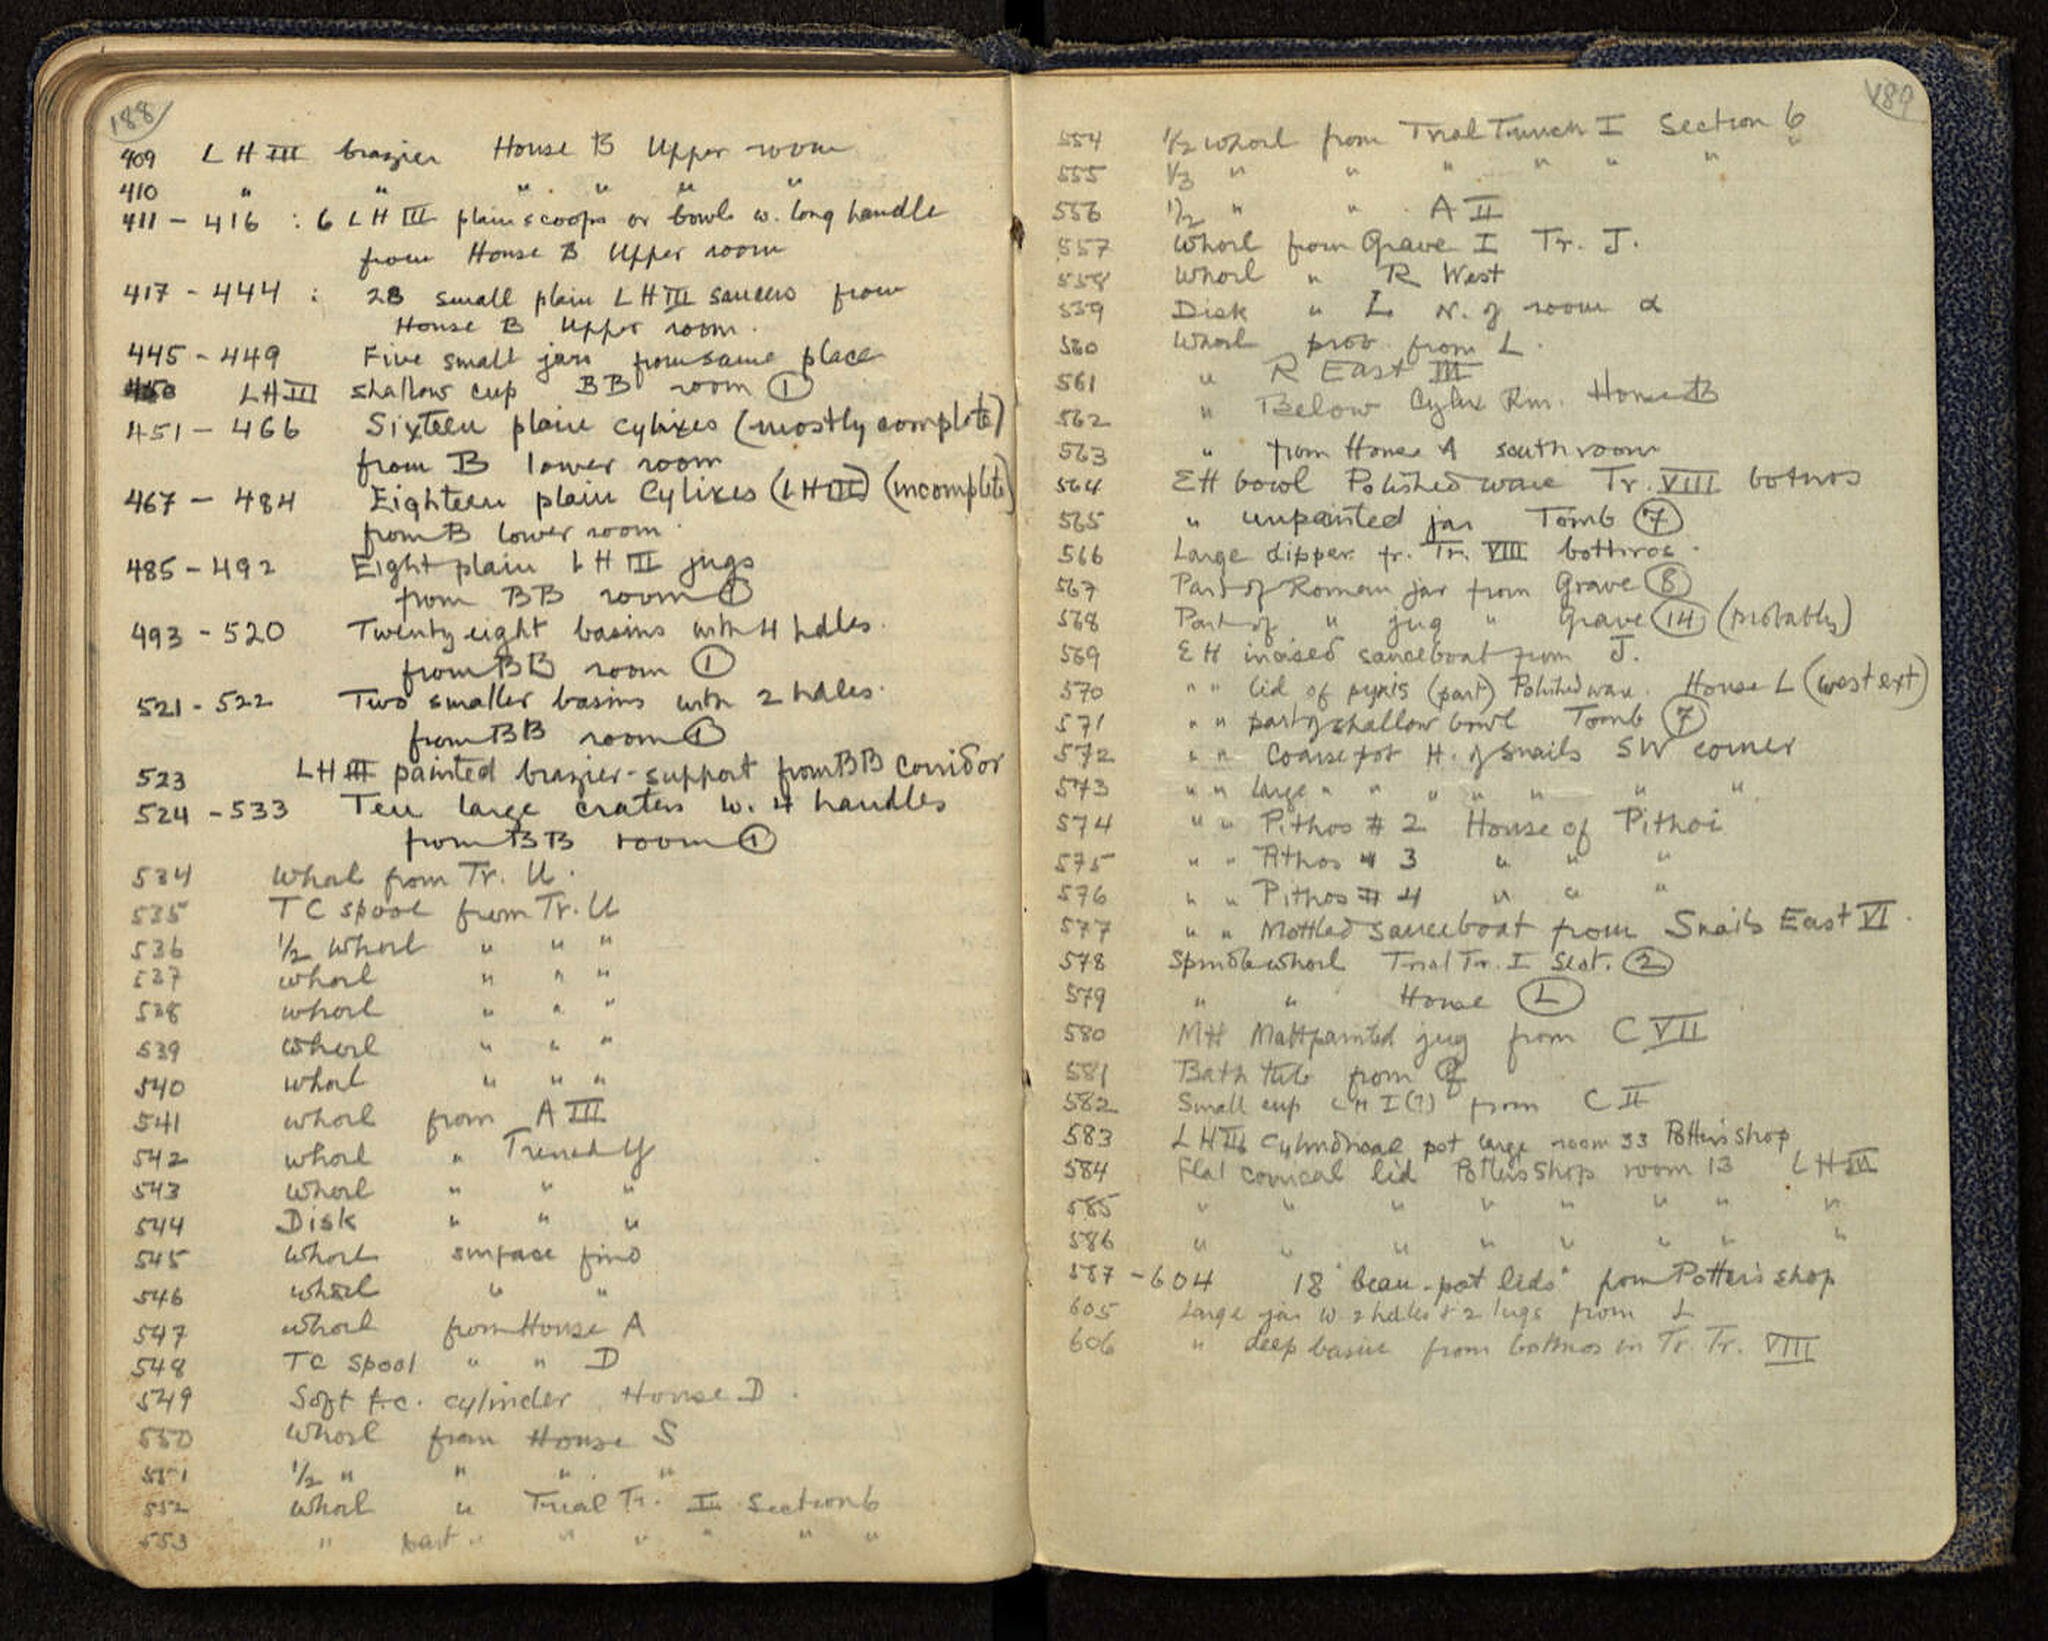 188
409 LH III brazier House B Upper room
410 " " " " " "
411 - 416 : 6 LH III plain scoops or bowls w. long handle
from House B Upper room
417 - 444 : 28 small plain LH III saucers from
House B Upper room.
445 - 449 Five small jars from same place
450 LH III shallow cup BB room ①
451 - 466 Sixteen plain cylixes (mostly complete)
from B lower room
467 - 484 Eighteen plain Cylixes (LH III) (incomplete)
from B lower room.
485 - 492 Eight plain LH III jugs
from BB room ①
493 - 520 Twenty eight basins with 4 hdles.
from BB room ①
521 - 522 Two smaller basins with 2 hdles.
from BB room ①
523 LH III painted brazier-support from BB corridor
524 - 533 Ten large craters w. 4 handles
from BB room ①
534 Whorl from Tr. U.
535 TC spool from Tr. U
536 1/2 Whorl " " "
537 whorl " " "
538 whorl " " "
539 whorl " " "
540 whorl " " "
541 whorl from A III
542 whorl " Trench Y
543 whorl " " "
544 Disk " " "
545 whorl surface find
546 whorl " "
547 whorl from House A
548 TC spool " " D
549 Soft t.c. cylinder House D.
550 Whorl from House S
551 1/2 " " " "
552 Whorl " Trial Tr. I Section 6
553 " part " " " " " "
189
554 1/2 whorl from Trial Trench I Section 6
555 1/3 " " " " " " "
556 1/2 " " A II
557 Whorl from Grave I Tr. J.
558 Whorl " R West
559 Disk " L N. of room α
560 Whorl prob. from L.
561 " R East III
562 " Below Cylix Rm. House B
563 " from House A south room
564 EH bowl Polished ware Tr. VIII bothros
565 " unpainted jar Tomb ⑦
566 Large dipper fr. Tr. VIII bothros.
567 Part of Roman jar from Grave ⑧
568 Part of " jug " Grave ⑭ (probably)
569 EH incised sauceboat from J.
570 " " lid of pyxis (part) Polished ware. House L (west ext)
571 " " part of shallow bowl Tomb ⑦
572 " " Coarse pot H. of Snails SW corner
573 " " large " " " " " " "
574 " " Pithos # 2 House of Pithoi
575 " " Pithos # 3 " " "
576 " " Pithos # 4 " " "
577 " " Mottled sauceboat from Snails East VI.
578 Spindlewhorl Trial Tr. I Sect. ②
579 " " House Ⓛ
580 MH Mattpainted jug from C VII
581 Bath tub from
582 Small cup LH I (?) from C II
583 LH III Cylindrical pot large room 33 Potter's shop
584 Flat conical lid Potters Shop room 13 LH III
585 " " " " " " " "
586 " " " " " " " "
587 - 604 18 "bean-pot lids" from Potter's shop
605 Large jar w 2 hdles + 2 lugs from L
606 " deep basin from bothros in Tr. Tr. VIII